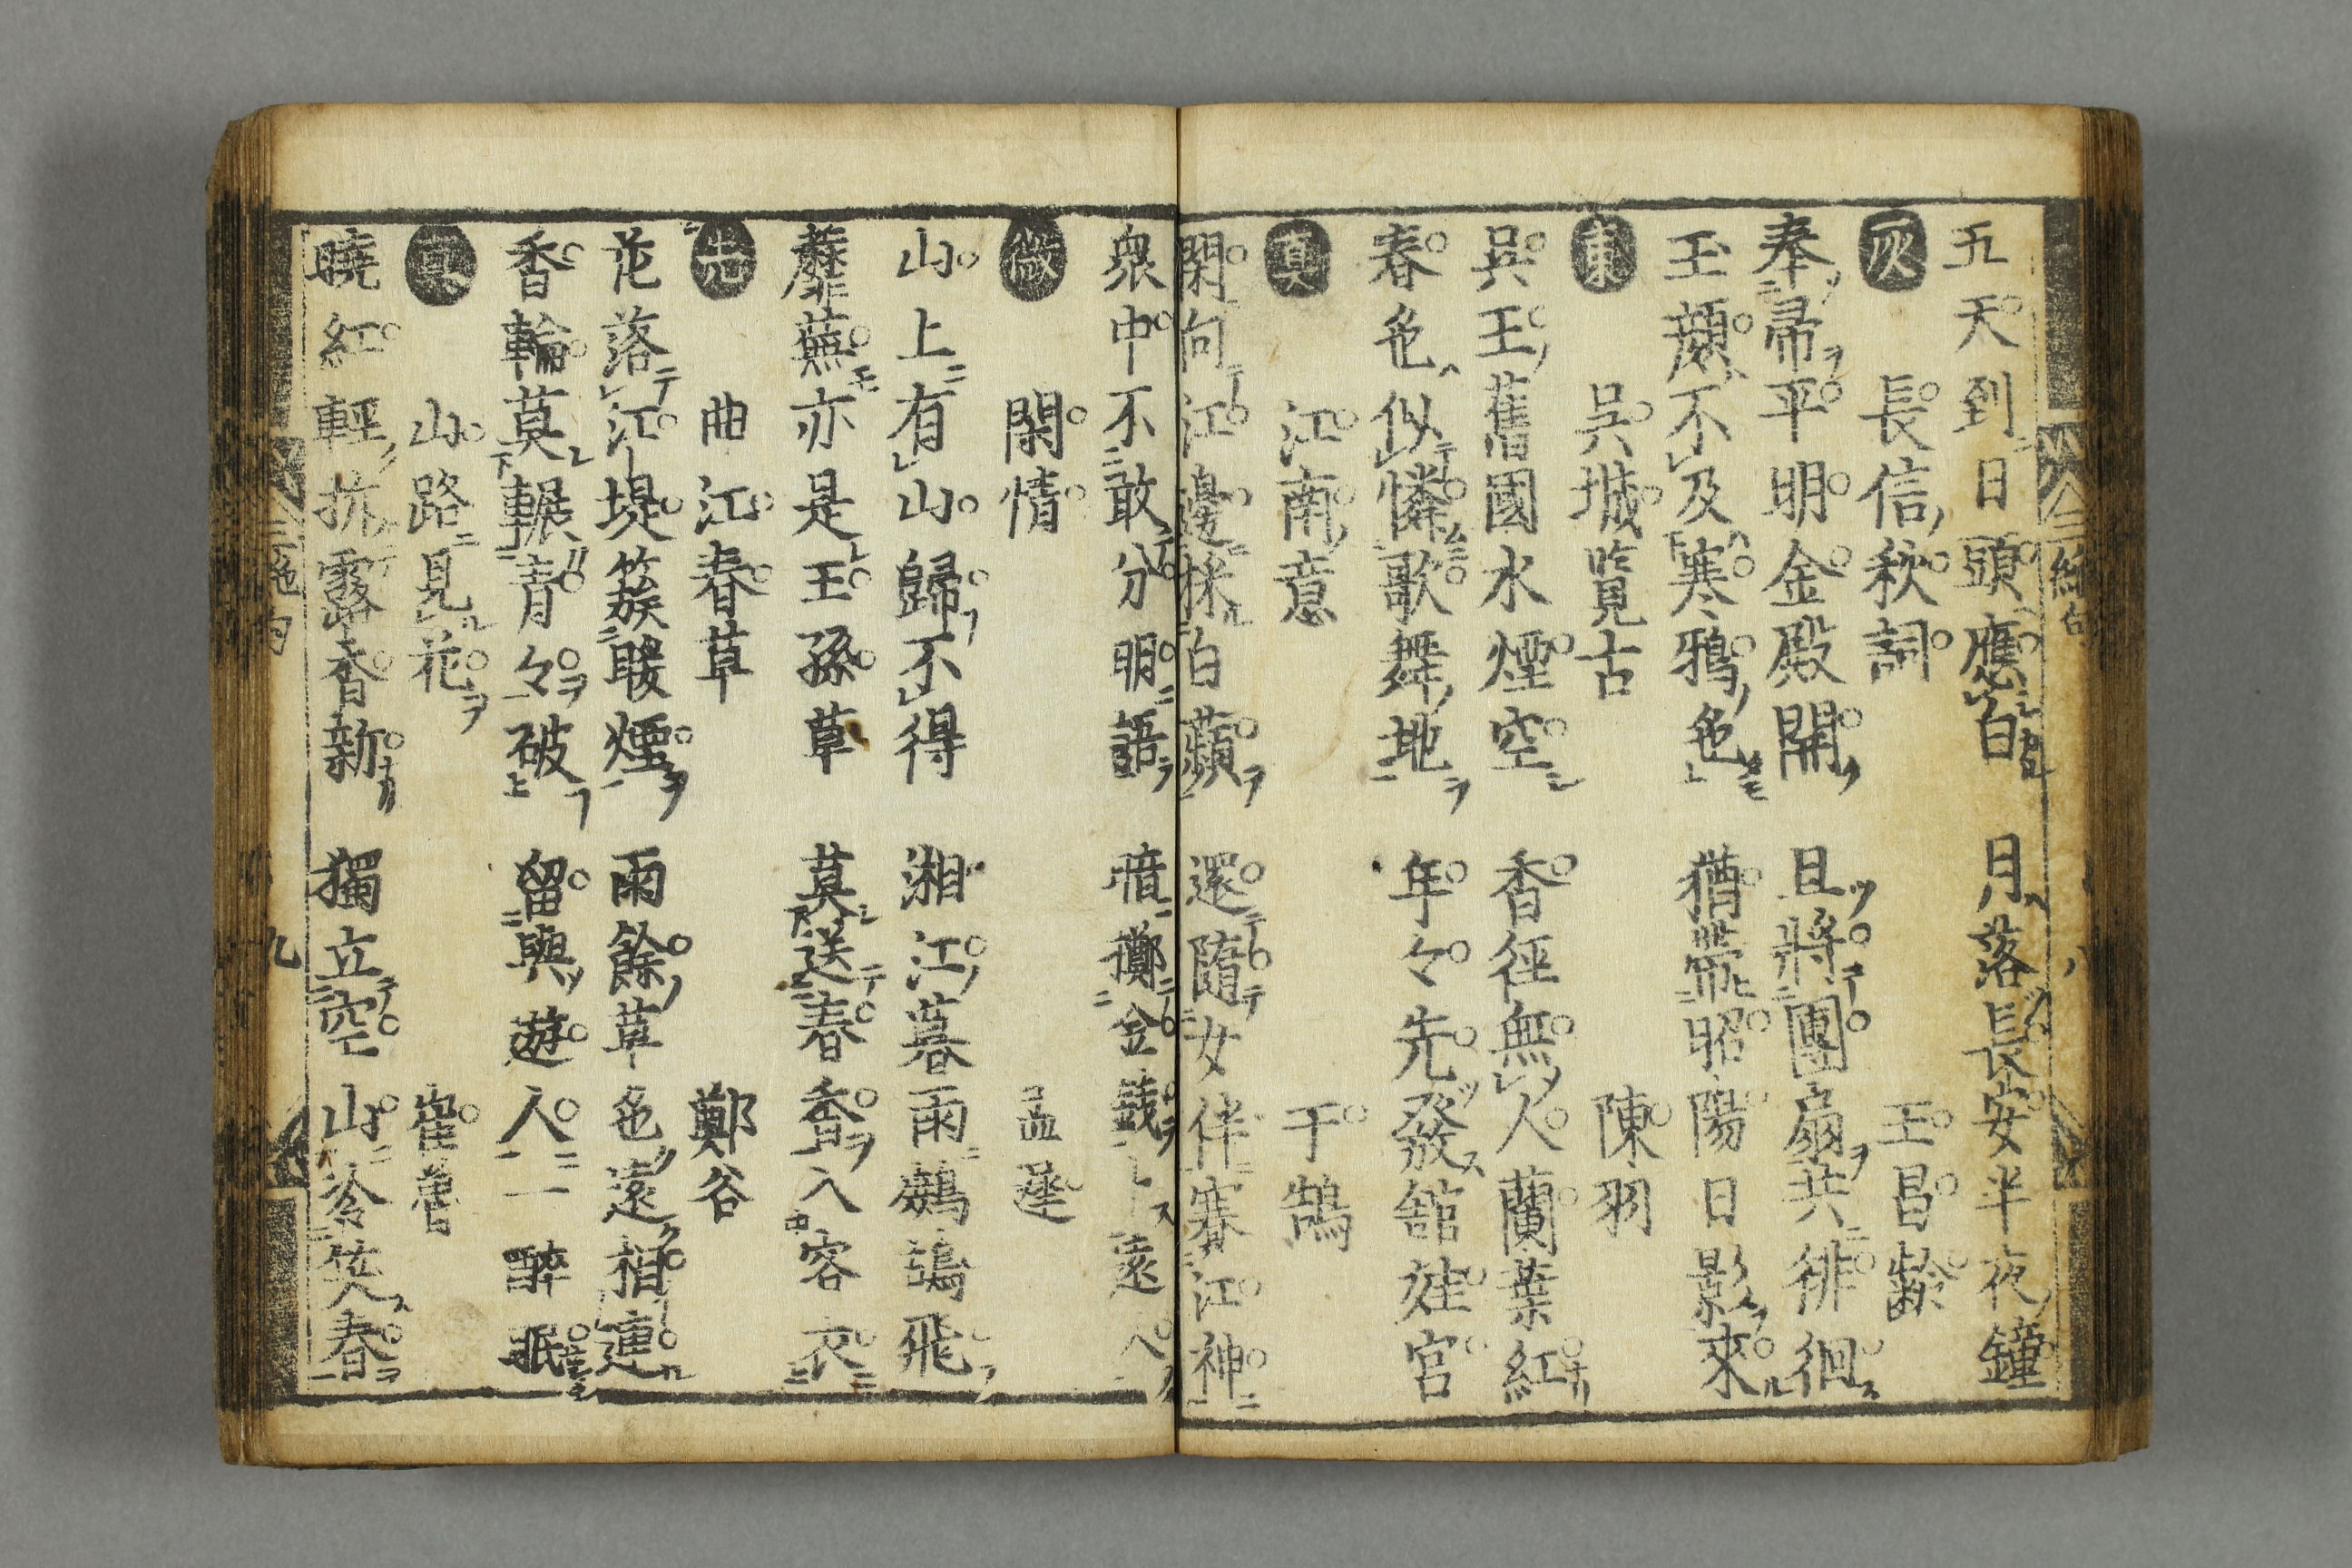 五天到日頭應白　月落長安半夜鐘
灰　長信秋詞　王昌齡
奉帚平明金殿開　且將團扇共徘徊
玉顏不及寒鴉色　猶帶昭陽日影來
東　吳城覧古　陳羽
吳王舊國水煙空　香徑無人蘭葉紅
春色似憐歌舞地　年々先發舘娃宮
真　江南意　于鵠
閑向江邊採白蘋　還隨女伴賽江神
衆中不敢分明語　暗擲金錢卜遠人
微　閑情　孟遲
山上有山歸不得　湘江暮雨鷓鴣飛
蘼蕪亦是王孫草　莫送春香入客衣
先　曲江春草　鄭谷
花落江堤簇暖煙　雨餘草色遠相連
香輪莫輾青々破　留與遊人一醉眠
真　山路見花　崔魯
曉紅輕拆露香新　獨立空山冷笑春
九